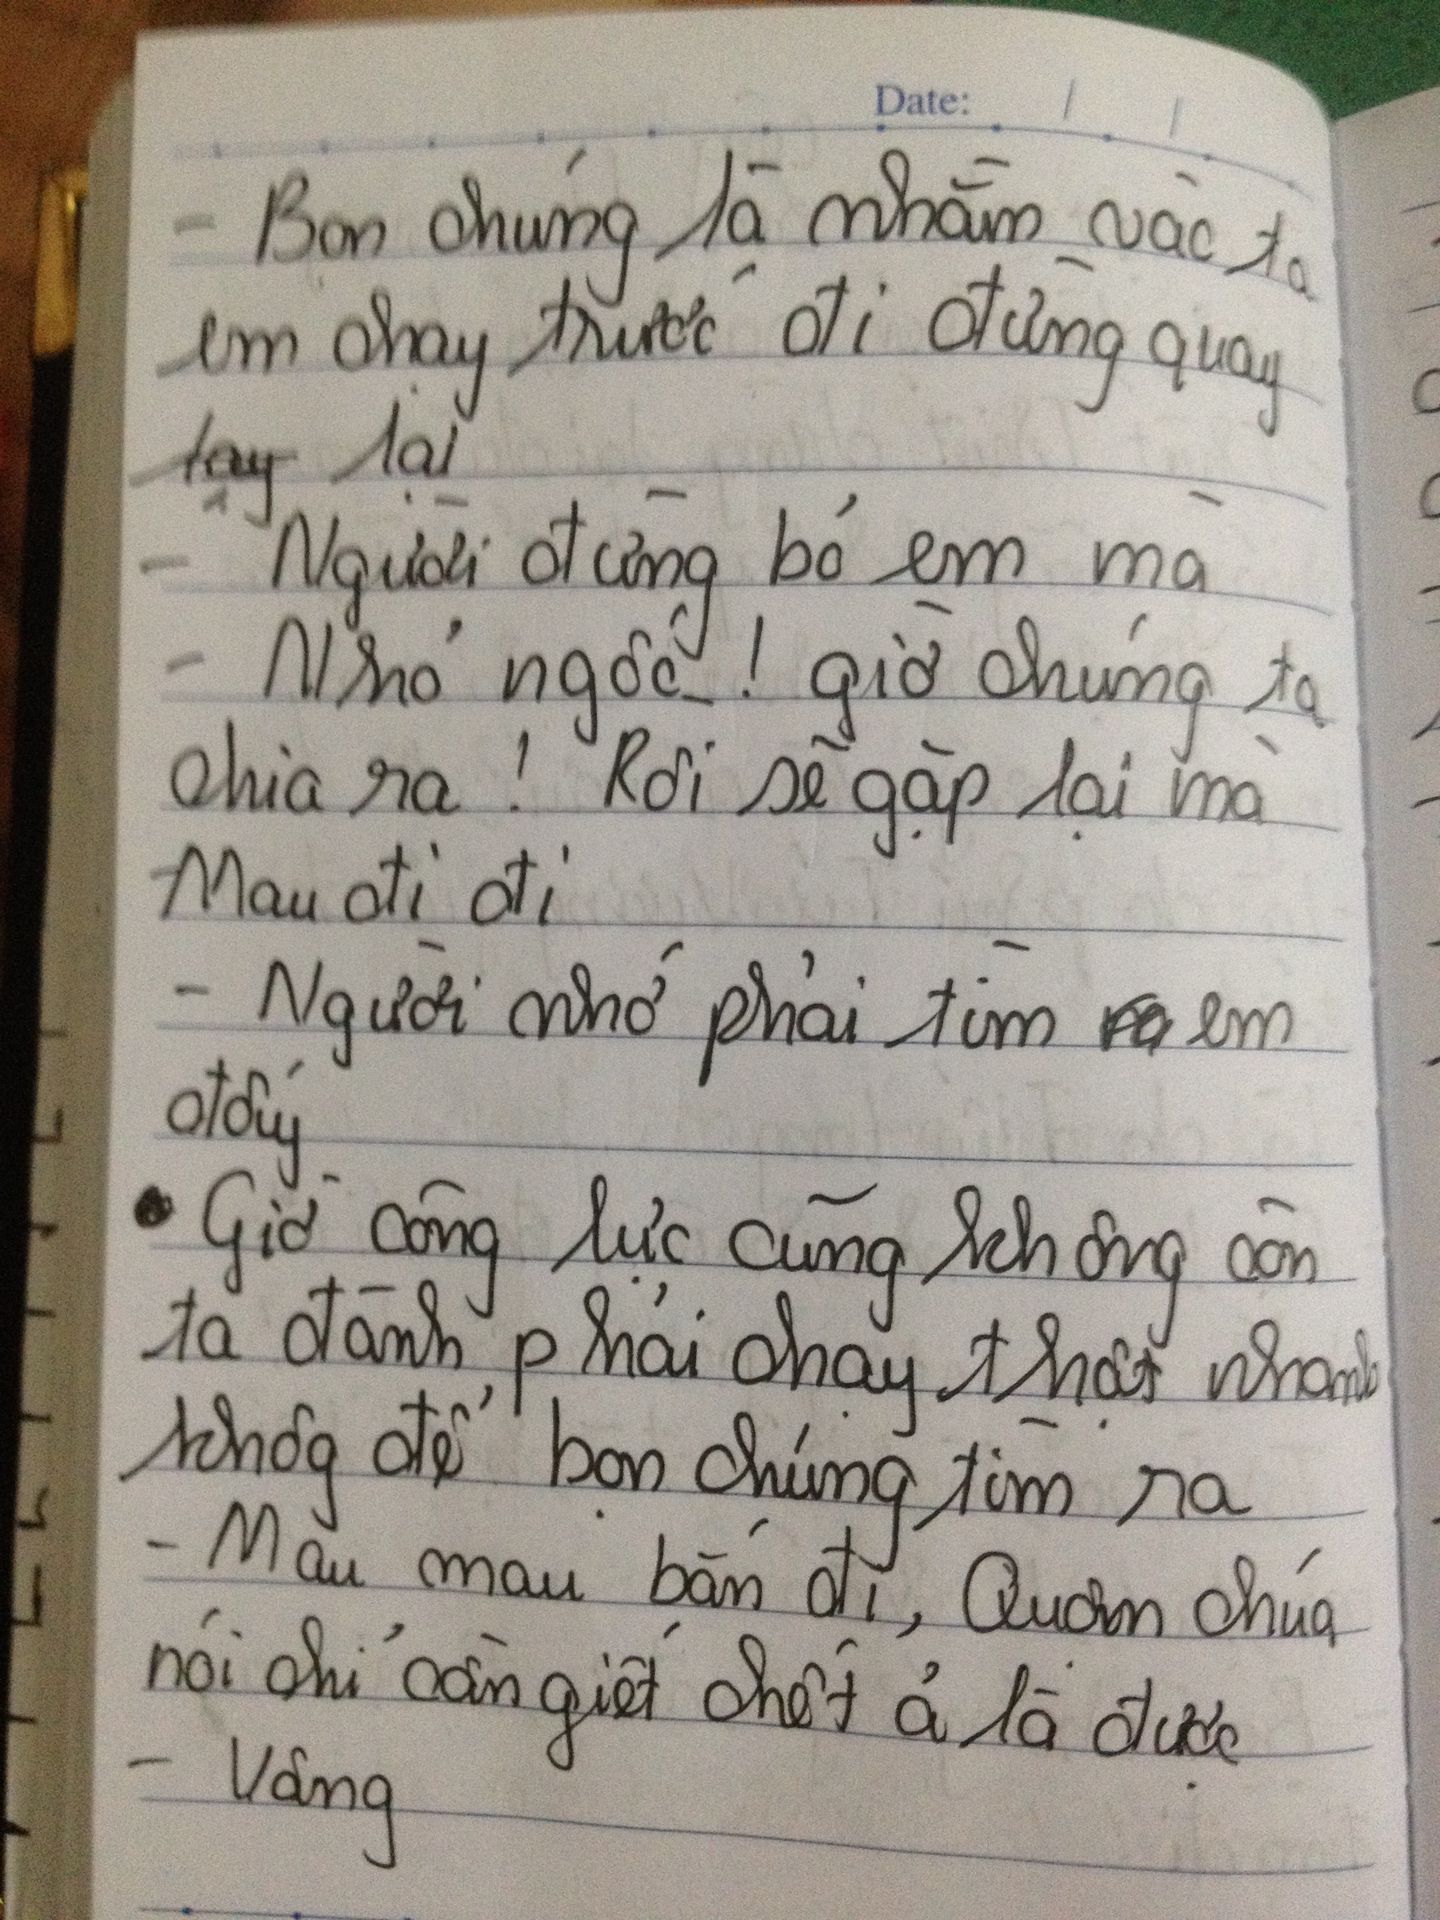 Date: / /
- Bọn chúng là nhằm vàc ta
em chạy trước đi đừng quay
lại
- Người đừng bỏ em mà
- Nhỏ ngốc! giờ chúng ta
chia ra! Rồi sẽ gặp lại mà
Mau đi đi
- Người nhớ phải tìm em
đấy
• Giờ công lực cũng không còn
ta đành phải chạy thật nhanh
khôg để bọn chúng tìm ra
- Mau mau bắn đi, Quận chúa
nói chỉ cần giết chết ả là được
- Vâng